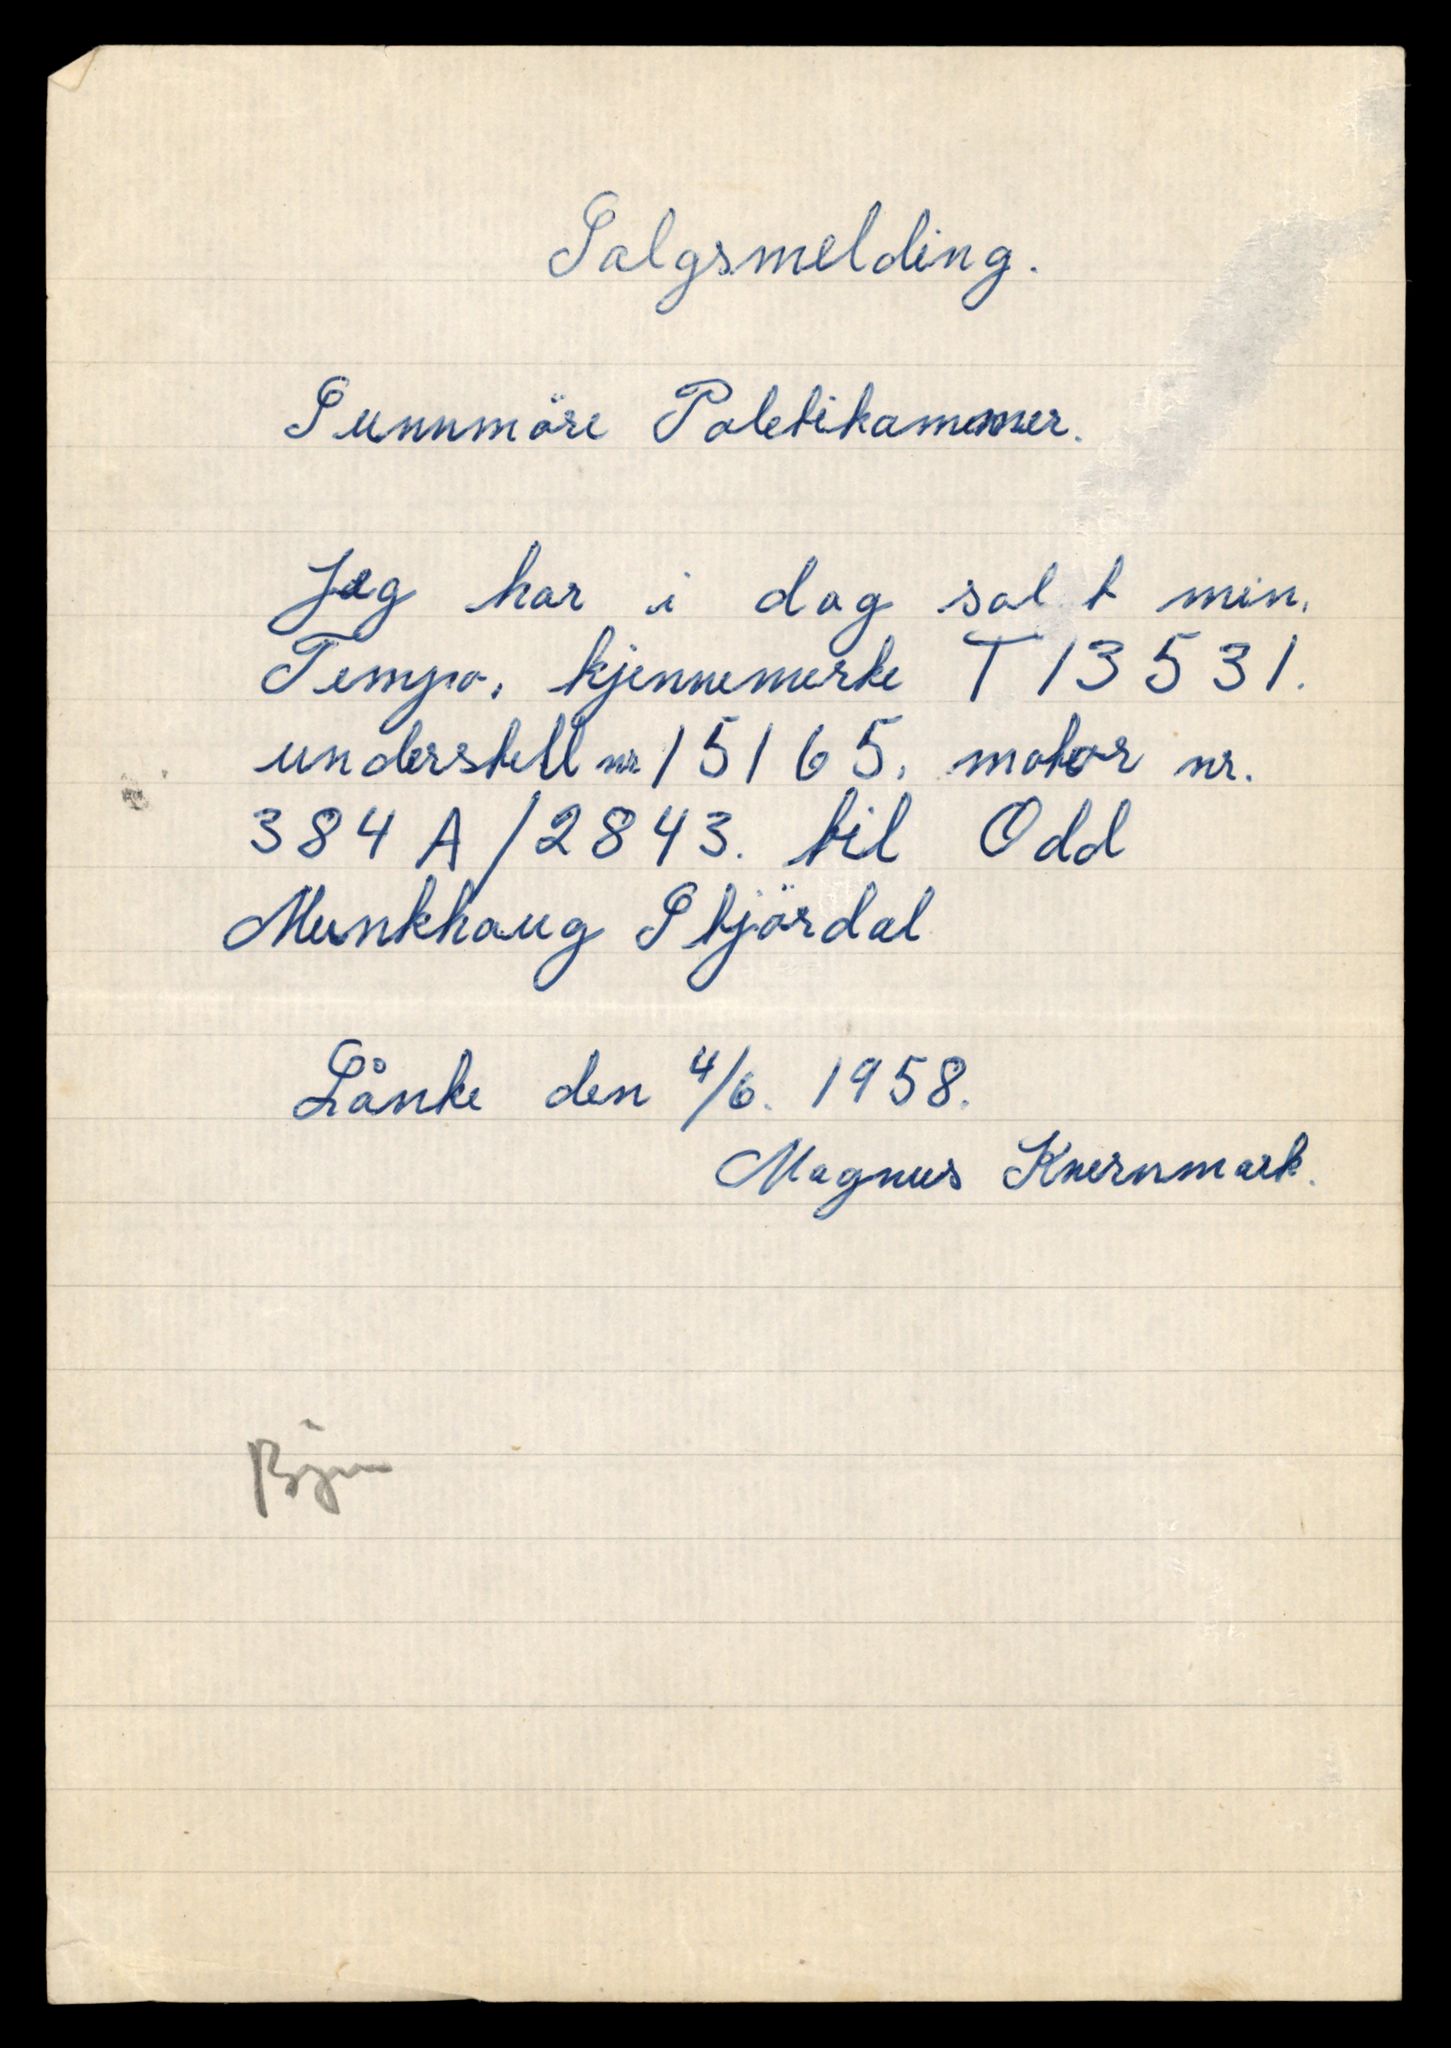 Salgsmelding.
Sunnmöre Poletikammer.
Jeg har i dag solt min.
Tempo. kjennemerke T 13531.
understell nr 15165. motor nr.
384 A/2843. til Odd
Munkhaug Stjördal
Lånke den 4/6. 1958.
Magnus Kvernmark.